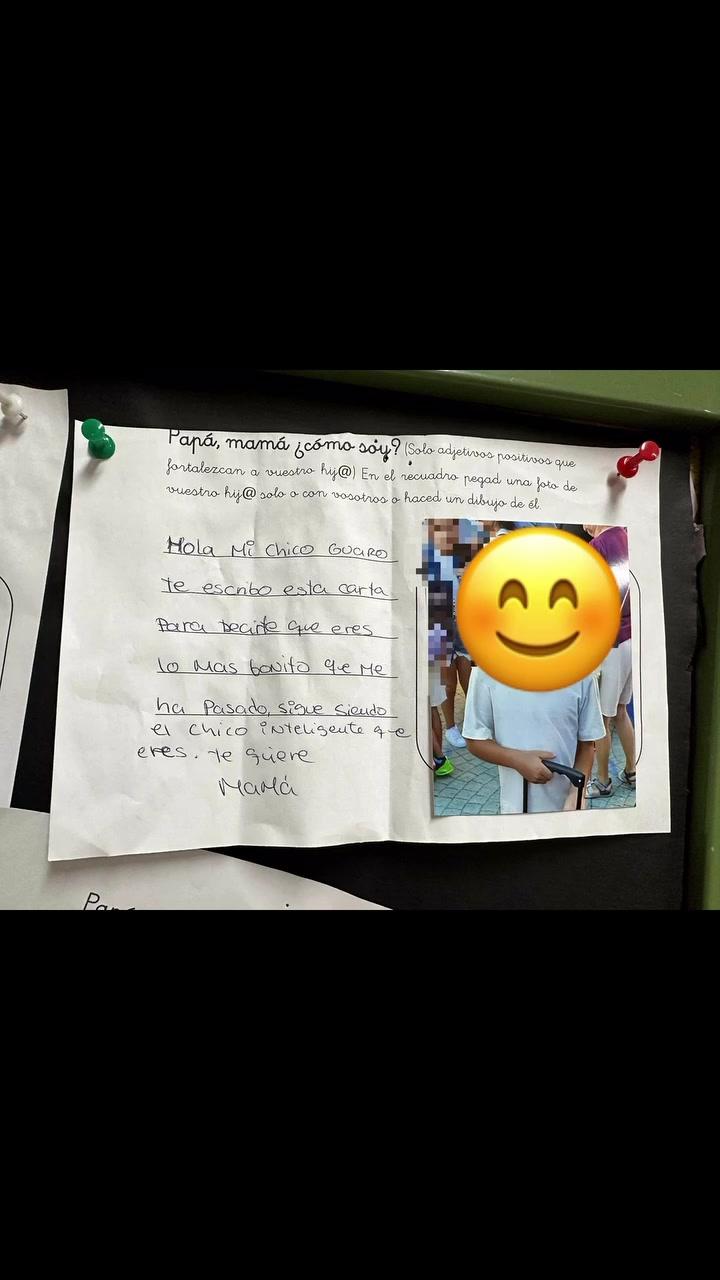 Papá, mamá ¿cómo soy? (Solo adjetivos positivos que
fortalezcan a vuestro hij@) En el recuadro pegad una foto de
vuestro hij@ solo o con vosotros o haced un dibujo de él.
Hola Mi chico GUAPO
te escribo esta carta
Para Decirte que eres
lo Mas bonito que Me
ha Pasado, sigue siendo
el chico inteligente que
eres. te quiere
MaMá